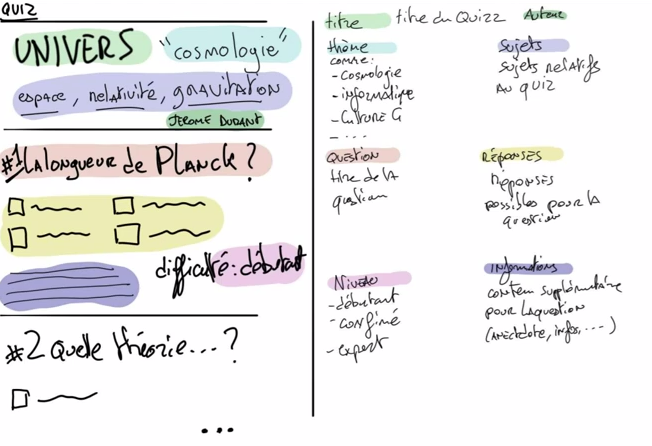 QUIZ
UNIVERS "cosmologie"
espace, relativité, gravitation
JEROME DURANT
#1 La longueur de Planck ?
difficulté : débutant
#2 Quelle théorie... ?
...
titre titre du Quizz Auteur
thème
comme :
- Cosmologie
- informatique
- Culture G
- ...
Sujets
sujets relatifs
au quiz
QUESTION
titre de la
question
RÉPONSES
Réponses
possibles pour la
question
Niveau
- débutant
- confirmé
- expert
Informations
contenu supplémentaire
pour la question
(anecdote, infos, ...)